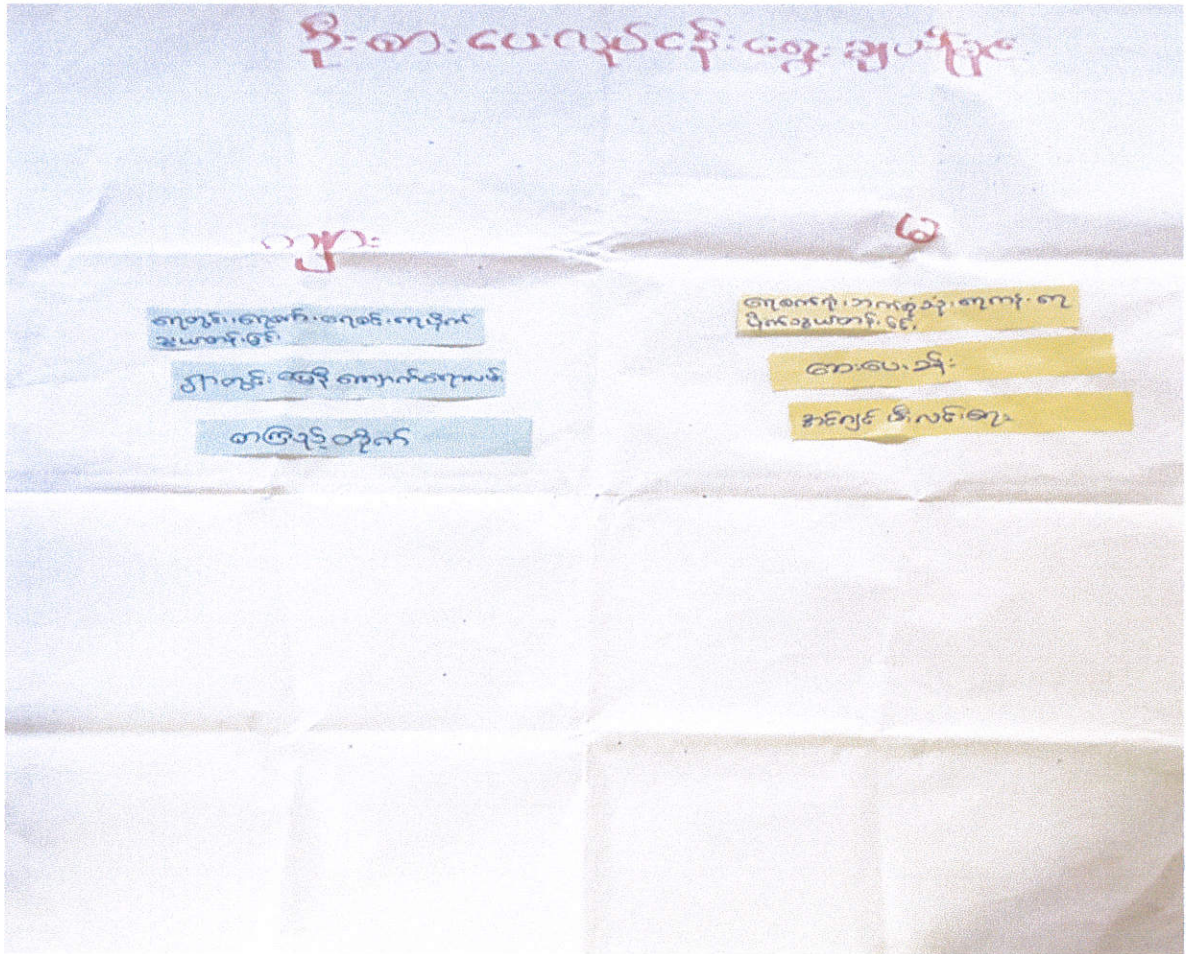 ဦးစားပေးလုပ်ငန်းရွေးချယ်ခြင်း
ကျား
ရေတွင်း၊ရေစက်၊ရေစင်၊ရေပိုက်
သွယ်တန်းခြင်း
ရွာတွင်း မြေနီ ကျောက်ချောလမ်း
စာကြည့်တိုက်
မ
ရေစက်ရုံ၊ဘက်စုံသုံး၊ရေကန်၊ရေ
ပိုက်သွယ်တန်းခြင်း
ဆေးပေးခန်း
အင်ဂျင် မီးလင်းရေး